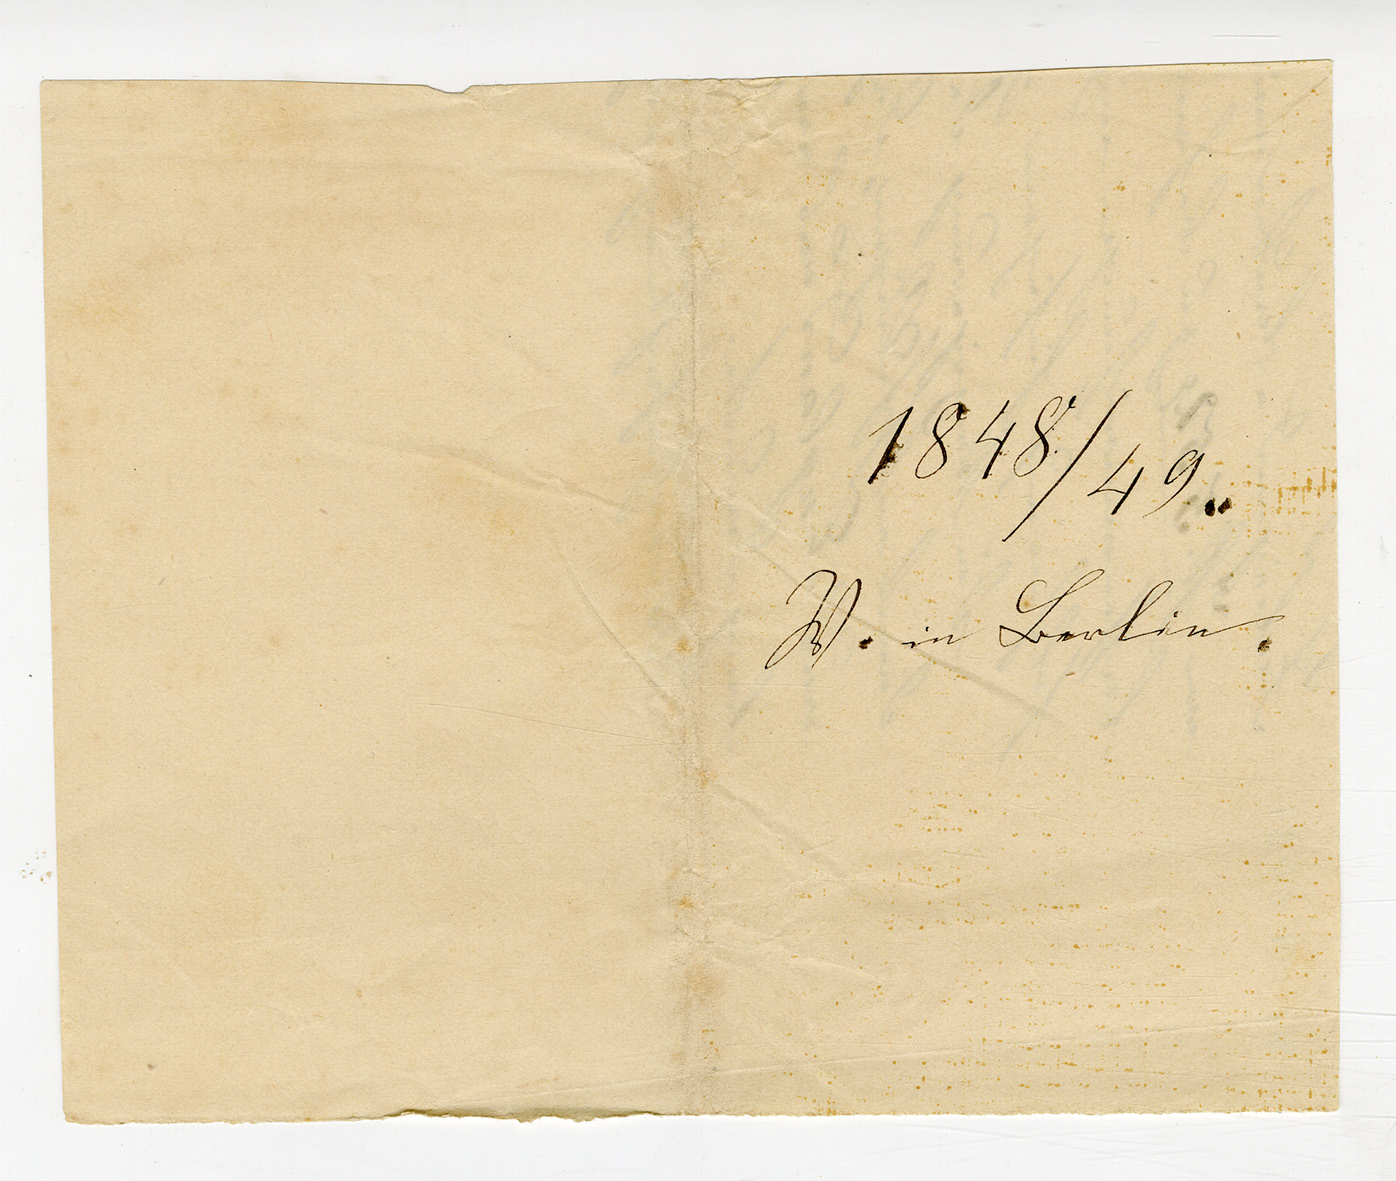 1848/49.
W. in Berlin.